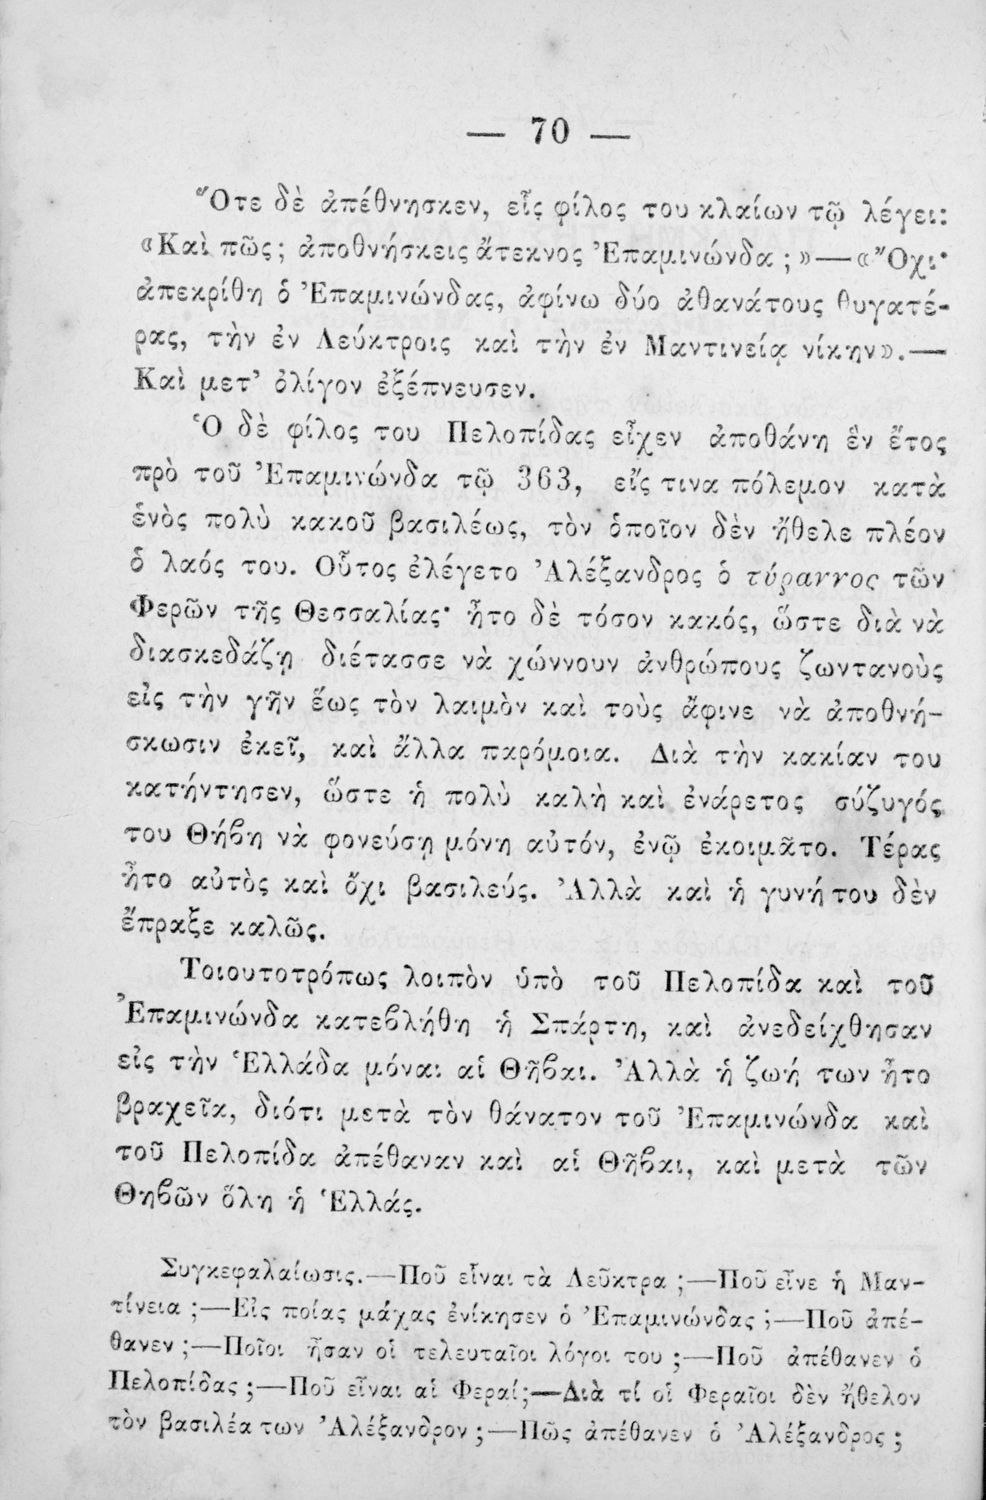 — 70 —
Ὅτε δὲ ἀπέθνησκεν, εἷς φίλος του κλαίων τῷ λέγει:
«Καὶ πῶς; ἀποθνήσκεις ἄτεκνος Ἐπαμινώνδα;»—«Ὄχι·
ἀπεκρίθη ὁ Ἐπαμινώνδας, ἀφίνω δύο ἀθανάτους θυγατέ-
ρας, τὴν ἐν Λεύκτροις καὶ τὴν ἐν Μαντινείᾳ νίκην».—
Καὶ μετ’ ὀλίγον ἐξέπνευσεν.
Ὁ δὲ φίλος του Πελοπίδας εἶχεν ἀποθάνῃ ἓν ἔτος
πρὸ τοῦ Ἐπαμινώνδα τῷ 363, εἴς τινα πόλεμον κατὰ
ἑνὸς πολὺ κακοῦ βασιλέως, τὸν ὁποῖον δὲν ἤθελε πλέον
ὁ λαός του. Οὗτος ἐλέγετο Ἀλέξανδρος ὁ τύραννος τῶν
Φερῶν τῆς Θεσσαλίας· ἦτο δὲ τόσον κακός, ὥστε διὰ νὰ
διασκεδάζῃ διέτασσε νὰ χώννουν ἀνθρώπους ζωντανοὺς
εἰς τὴν γῆν ἕως τὸν λαιμὸν καὶ τοὺς ἄφινε νὰ ἀποθνή-
σκωσιν ἐκεῖ, καὶ ἄλλα παρόμοια. Διὰ τὴν κακίαν του
κατήντησεν, ὥστε ἡ πολὺ καλὴ καὶ ἐνάρετος σύζυγός
του Θήβη νὰ φονεύσῃ μόνη αὐτόν, ἐνῷ ἐκοιμᾶτο. Τέρας
ἦτο αὐτὸς καὶ ὄχι βασιλεύς. Ἀλλὰ καὶ ἡ γυνή του δὲν
ἔπραξε καλῶς.
Τοιουτοτρόπως λοιπὸν ὑπὸ τοῦ Πελοπίδα καὶ τοῦ
Ἐπαμινώνδα κατεβλήθη ἡ Σπάρτη, καὶ ἀνεδείχθησαν
εἰς τὴν Ἑλλάδα μόναι αἱ Θῆβαι. Ἀλλὰ ἡ ζωή των ἦτο
βραχεῖα, διότι μετὰ τὸν θάνατον τοῦ Ἐπαμινώνδα καὶ
τοῦ Πελοπίδα ἀπέθαναν καὶ αἱ Θῆβαι, καὶ μετὰ τῶν
Θηβῶν ὅλη ἡ Ἑλλάς.
Συγκεφαλαίωσις.—Ποῦ εἶναι τὰ Λεῦκτρα;—Ποῦ εἶνε ἡ Μαν-
τίνεια;—Εἰς ποίας μάχας ἐνίκησεν ὁ Ἐπαμινώνδας;—Ποῦ ἀπέ-
θανεν;—Ποῖοι ἦσαν οἱ τελευταῖοι λόγοι του;—Ποῦ ἀπέθανεν ὁ
Πελοπίδας;—Ποῦ εἶναι αἱ Φεραί;—Διὰ τί οἱ Φεραῖοι δὲν ἤθελον
τὸν βασιλέα των Ἀλέξανδρον;—Πῶς ἀπέθανεν ὁ Ἀλέξανδρος;